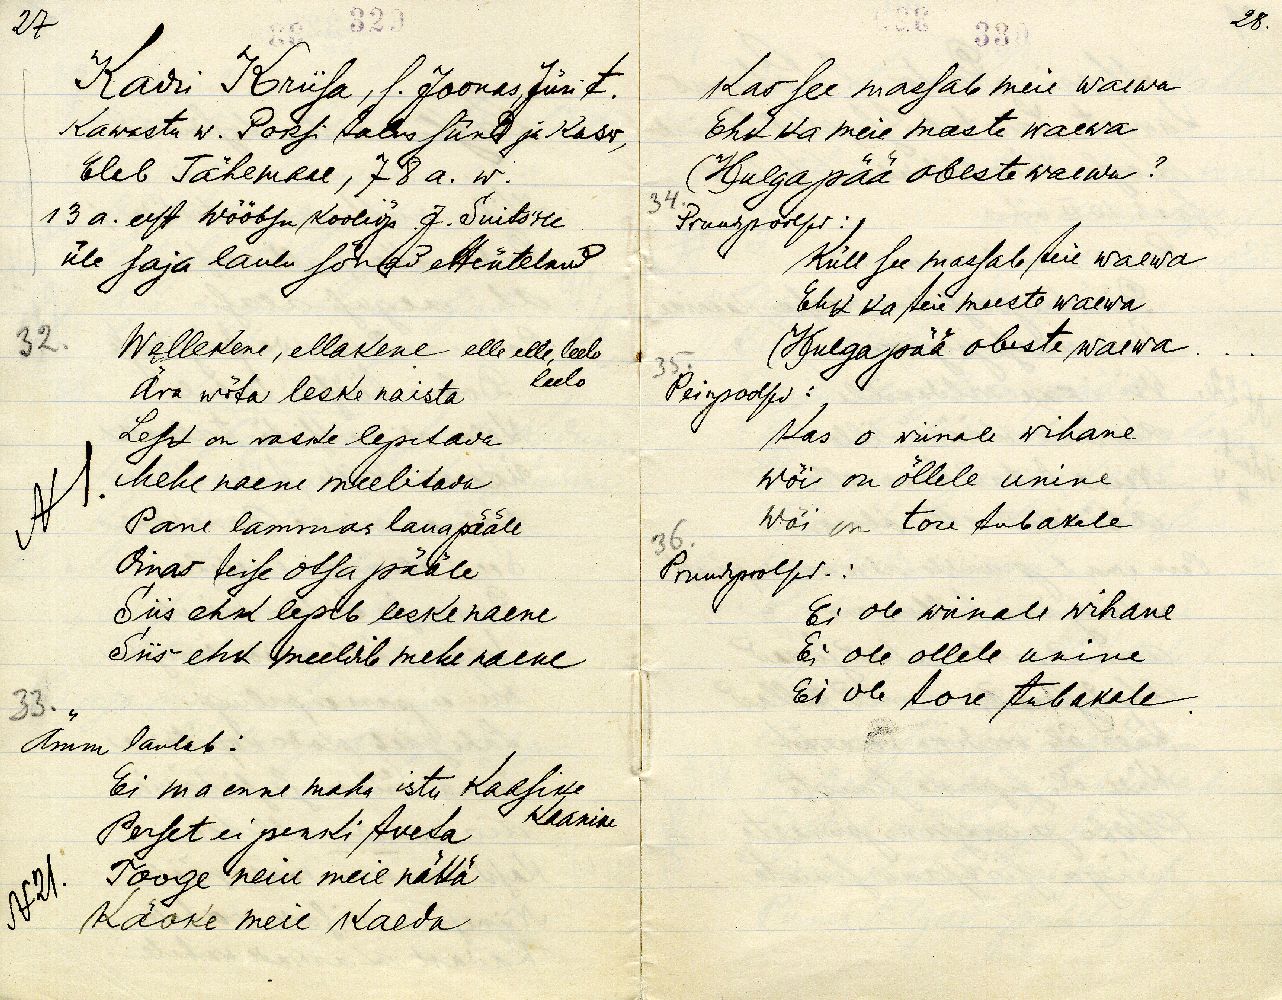 27
320
Kadri Kriisa, s. Joonas, Jüri t.
Kawastu w. Poksi talus sünd ja kasw,
Eleb Tähemaal, 78 a. w.
13 a. eest Wööbsu kooliõp. J. Suitsule
üle saja laulu sõnad etteütelnud
32.
Wellekene, ellakene elle elle, leelo
leelo
Ära wõta leske naista
Lesk on raske lepitada
Mehe naene meelitada
N 1.
Pane lammas lauapääle
Oinas teise otsa pääle
Siis ehk lepib leskenaene
Siis ehk meeldib mehe naene
33.
Ämm laulab:
Ei ma enne maha istu Kaasike
Kaanike
Perset ei penki toeta
Tooge neiu meie nättä
N 21.
Käoke meie kaeda
330
28.
Kas see massab meie waewa
Ehk ka meie meeste waewa
(H)ulgapää obeste waewa?
34.
Pruudipoolsed:
Küll see massab teie waewa
Ehk ka teie meeste waewa
(H)ulgapää obeste waewa . . .
35.
Peiupoolsed:
Kas o wiinale wihane
wõi on õllele unine
Wõi on tore tubakale
36.
Pruudipoolsed.:
Ei ole wiinale wihane
Ei ole ollele unine
Ei ole tore tubakale.